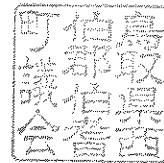 鳥取県西
伯郡伯耆
町議会